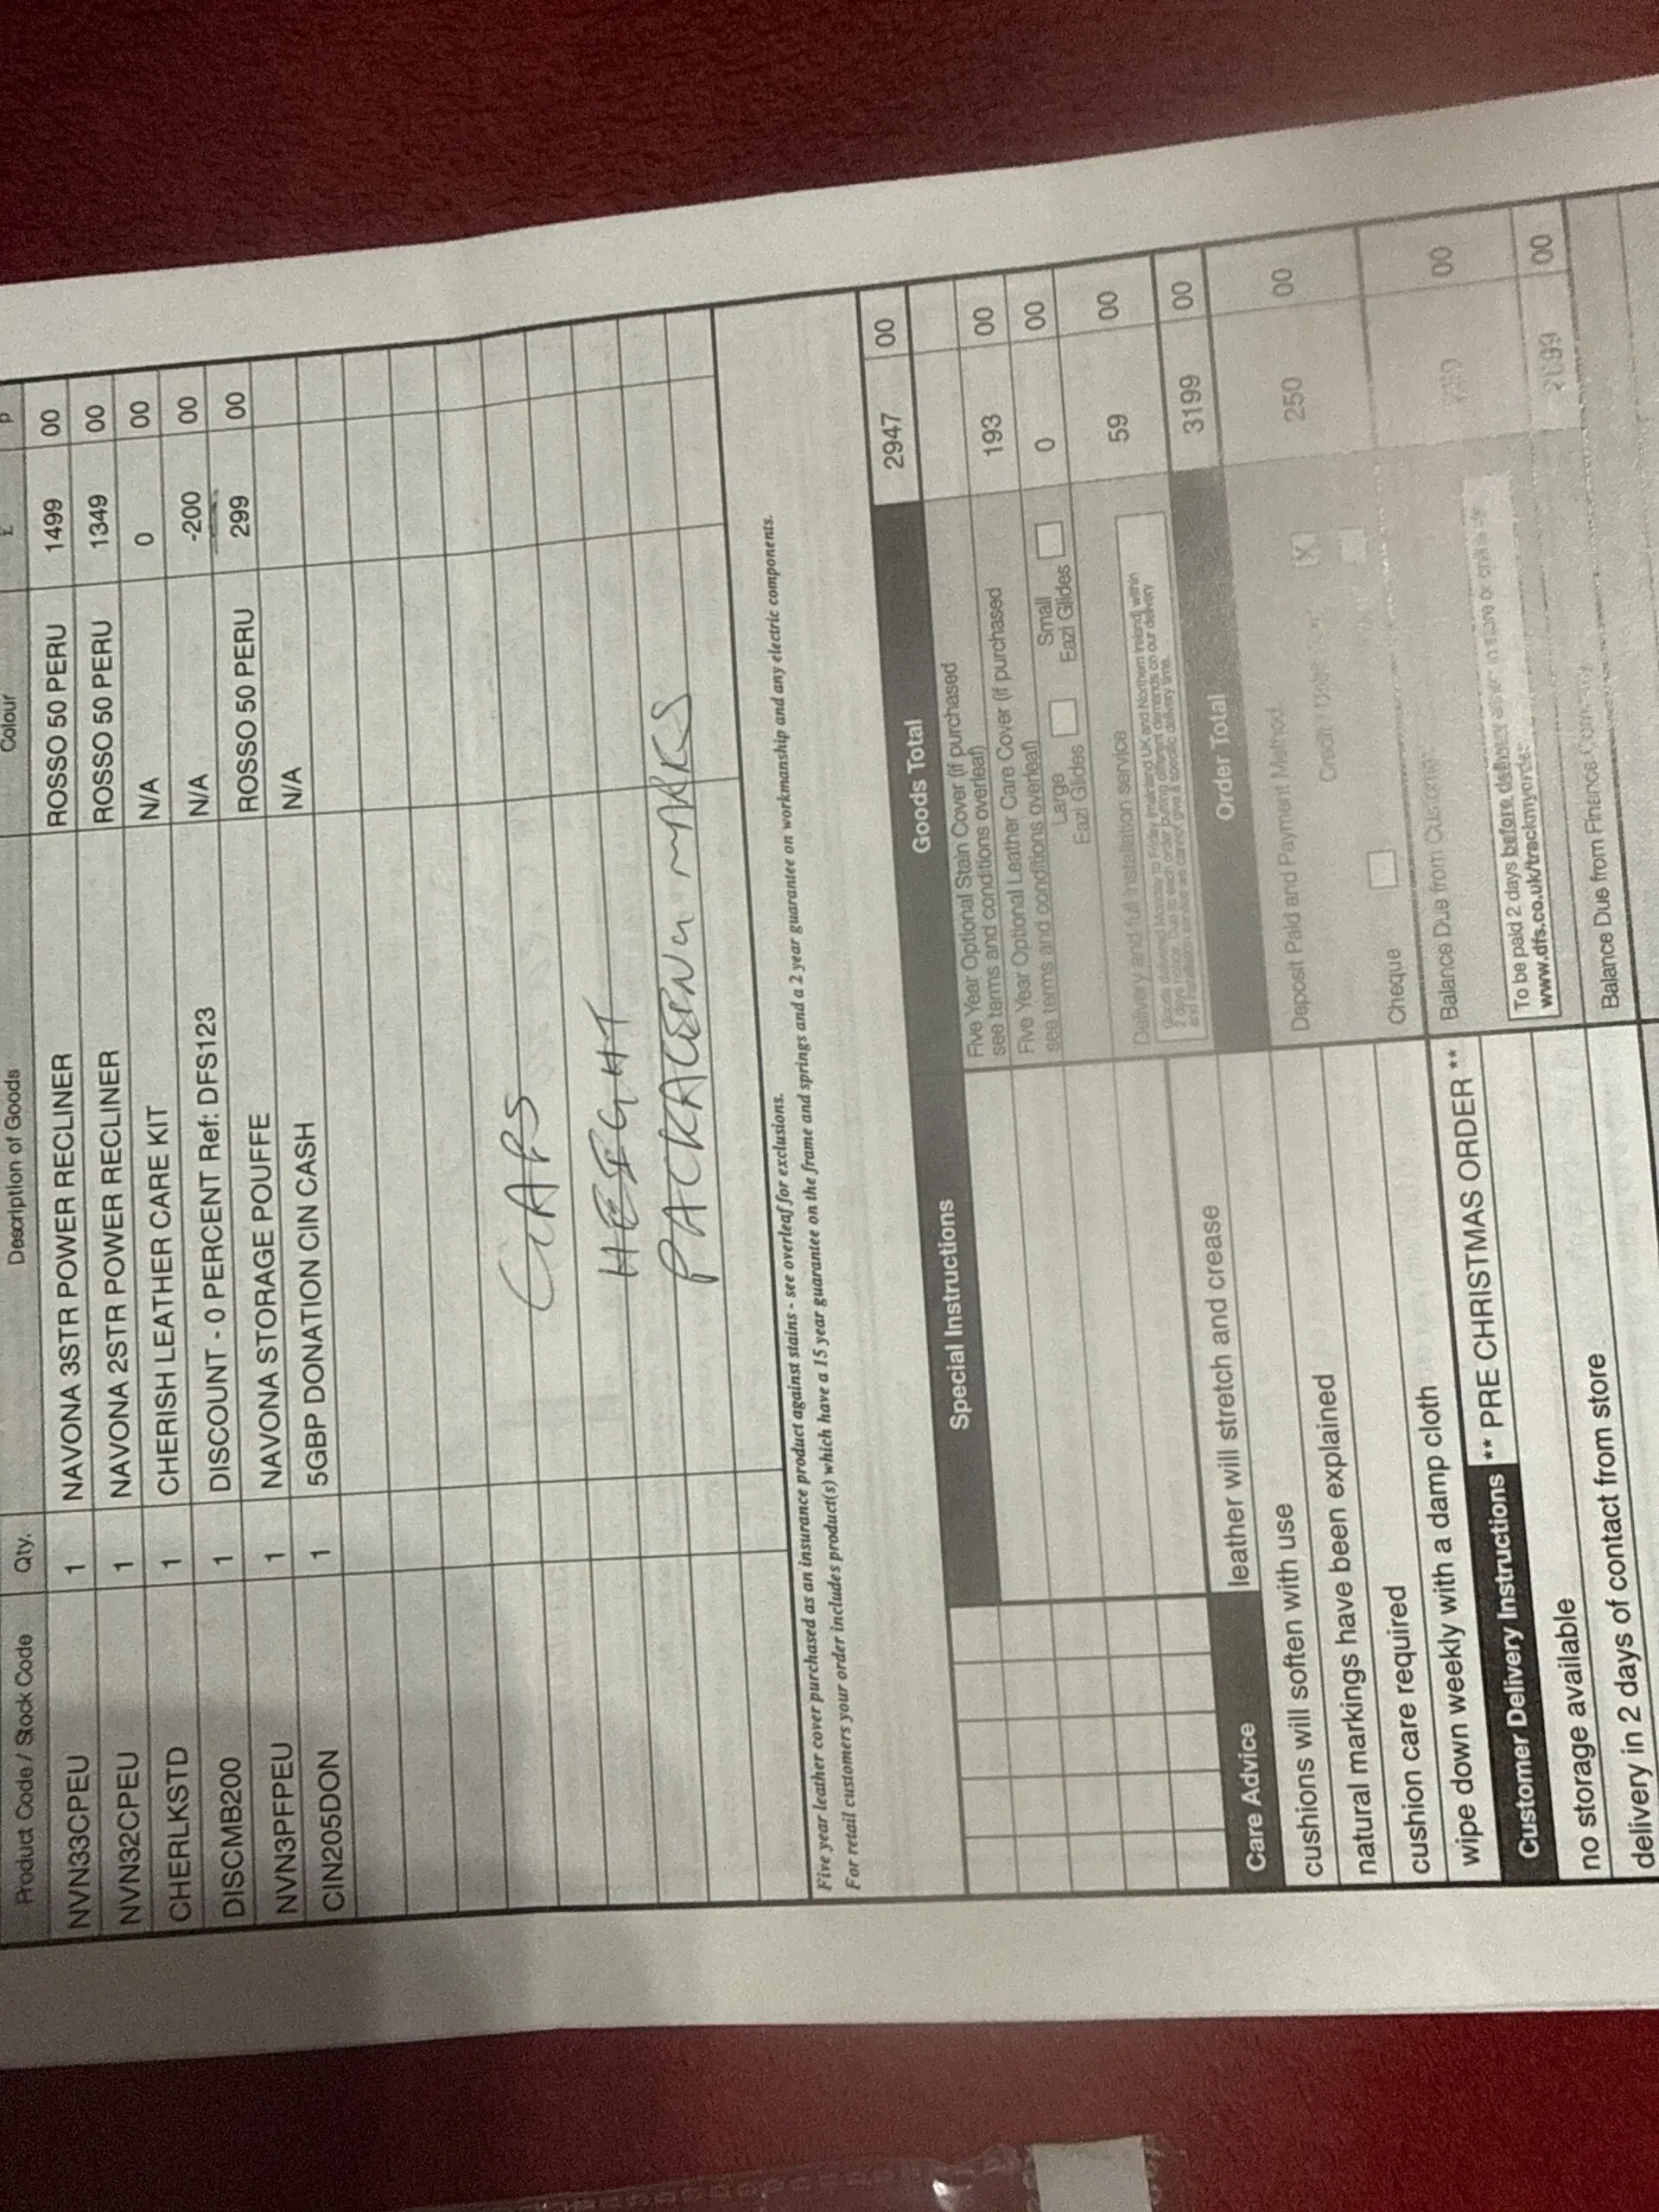 Product Code / Stock Code Qty. Description of Goods Colour £ p
NVN33CPEU 1 NAVONA 3STR POWER RECLINER ROSSO 50 PERU 1499 00
NVN32CPEU 1 NAVONA 2STR POWER RECLINER ROSSO 50 PERU 1349 00
CHERLKSTD 1 CHERISH LEATHER CARE KIT N/A 0 00
DISCMB200 1 DISCOUNT - 0 PERCENT Ref: DFS123 N/A -200 00
NVN3PFPEU 1 NAVONA STORAGE POUFFE ROSSO 50 PERU 299 00
CIN205DON 1 5GBP DONATION CIN CASH N/A
GAPS
HEIGHT
PACKAGING MARKS
Five year leather cover purchased as an insurance product against stains - see overleaf for exclusions.
For retail customers your order includes product(s) which have a 15 year guarantee on the frame and springs and a 2 year guarantee on workmanship and any electric components.
Goods Total 2947 00
Special Instructions
Five Year Optional Stain Cover (if purchased
see terms and conditions overleaf) 193 00
Five Year Optional Leather Care Cover (if purchased
see terms and conditions overleaf) 0 00
Large Eazi Glides Small Eazi Glides
Delivery and full installation service 59 00
Goods delivered Monday to Friday (mainland UK and Northern Ireland) within
2 days notice. Due to each order putting different demands on our delivery
and installation service we cannot give a specific delivery time.
Order Total 3199 00
Care Advice leather will stretch and crease
cushions will soften with use
natural markings have been explained
cushion care required
wipe down weekly with a damp cloth
Deposit Paid and Payment Method 250 00
Credit / X
Cheque
Balance Due from Customer 00
To be paid 2 days before delivery either in store or online
www.dfs.co.uk/trackmyorder 00
Customer Delivery Instructions ** PRE CHRISTMAS ORDER **
no storage available
delivery in 2 days of contact from store
Balance Due from Finance Company